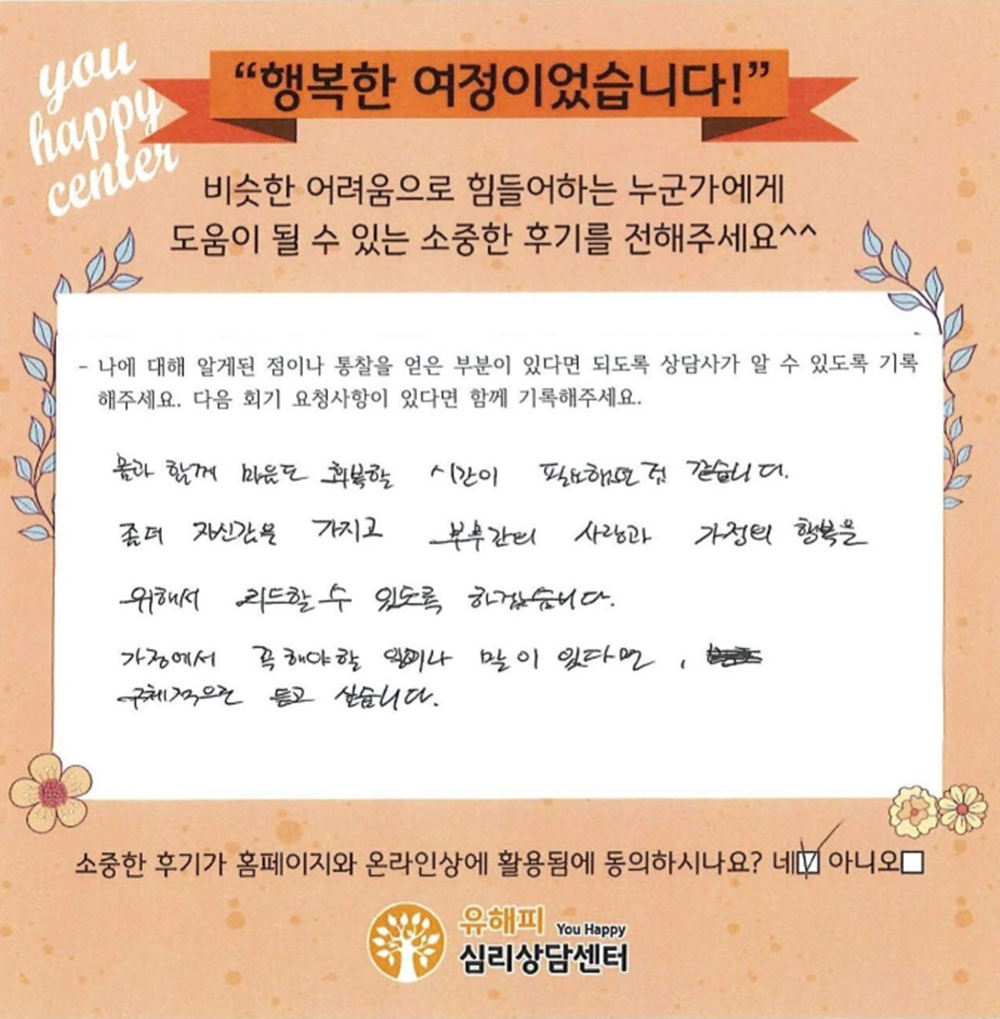 you
happy
center
“행복한 여정이었습니다!”
비슷한 어려움으로 힘들어하는 누군가에게
도움이 될 수 있는 소중한 후기를 전해주세요^^
- 나에 대해 알게된 점이나 통찰을 얻은 부분이 있다면 되도록 상담사가 알 수 있도록 기록
해주세요. 다음 회기 요청사항이 있다면 함께 기록해주세요.
몸과 함께 마음도 회복할 시간이 필요했던 것 같습니다.
좀더 자신감을 가지고 부부간의 사랑과 가정의 행복을
위해서 리드할 수 있도록 하겠습니다.
가정에서 꼭 해야할 일이나 말이 있다면,
구체적으로 듣고 싶습니다.
소중한 후기가 홈페이지와 온라인상에 활용됨에 동의하시나요? 네☑ 아니오☐
유해피 You Happy
심리상담센터